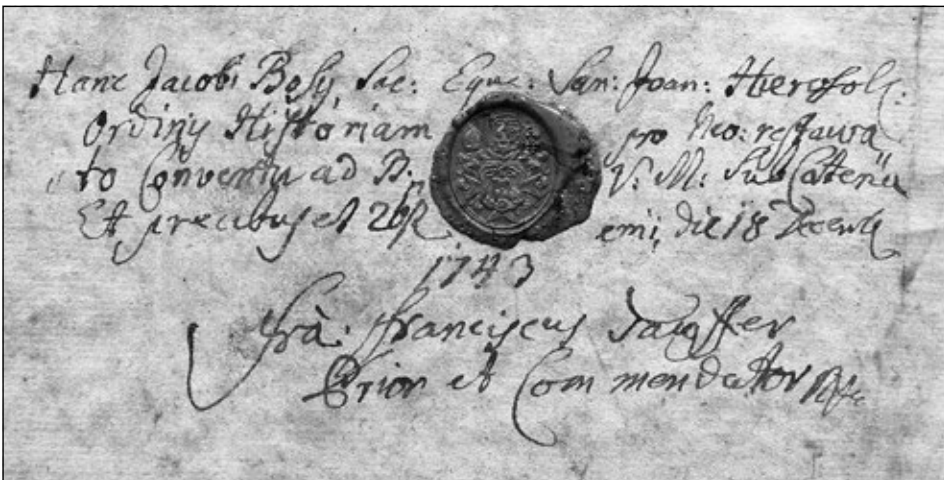 Hanc Jacobi Bosij Sac: Eque: San: Joan: Hierosol:
Ordinis Historiam pro Neo: restaura
to Conventu ad B. V. M: Sub Catena
Et precibus et emi, die 18 Decemb
1743
Fra: Franciscus Tauffer
Prior et Commendator